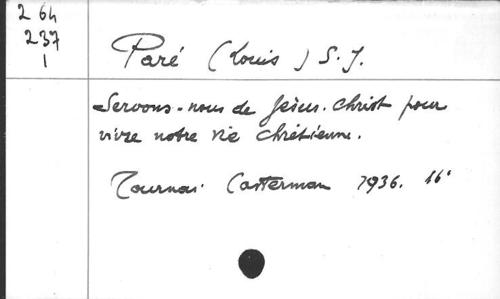 2 64
237
1
Paré (Louis) S.J.
Servons-nous de Jésus-Christ pour
vivre notre vie chrétienne.
Tournai Casterman 1936. 16°